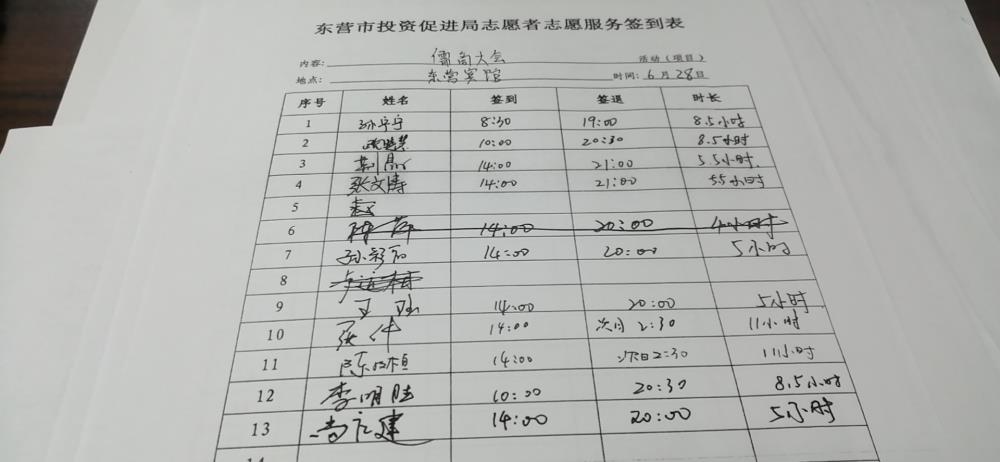 东营市投资促进局志愿者志愿服务签到表
内容: 儒商大会 活动（项目）
地点: 东营宾馆 时间: 6月28日
序号 姓名 签到 签退 时长
1 孙宁宁 8:30 19:00 8.5小时
2 10:00 20:30 8.5小时
3 荆晶 14:00 21:00 5.5小时
4 张文涛 14:00 21:00 5.5小时
5
6 14:00 20:00 4小时
7 孙彩石 14:00 20:00 5小时
8
9 王 14:00 20:00 5小时
10 张 14:00 次日2:30 11小时
11 陈 14:00 次日2:30 11小时
12 李明胜 10:00 20:30 8.5小时
13 尚广建 14:00 20:00 5小时